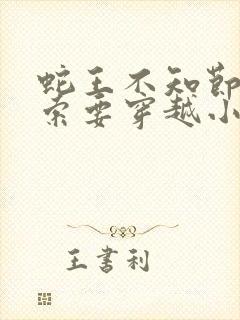 蛇王不知节
索要穿越小
王书利